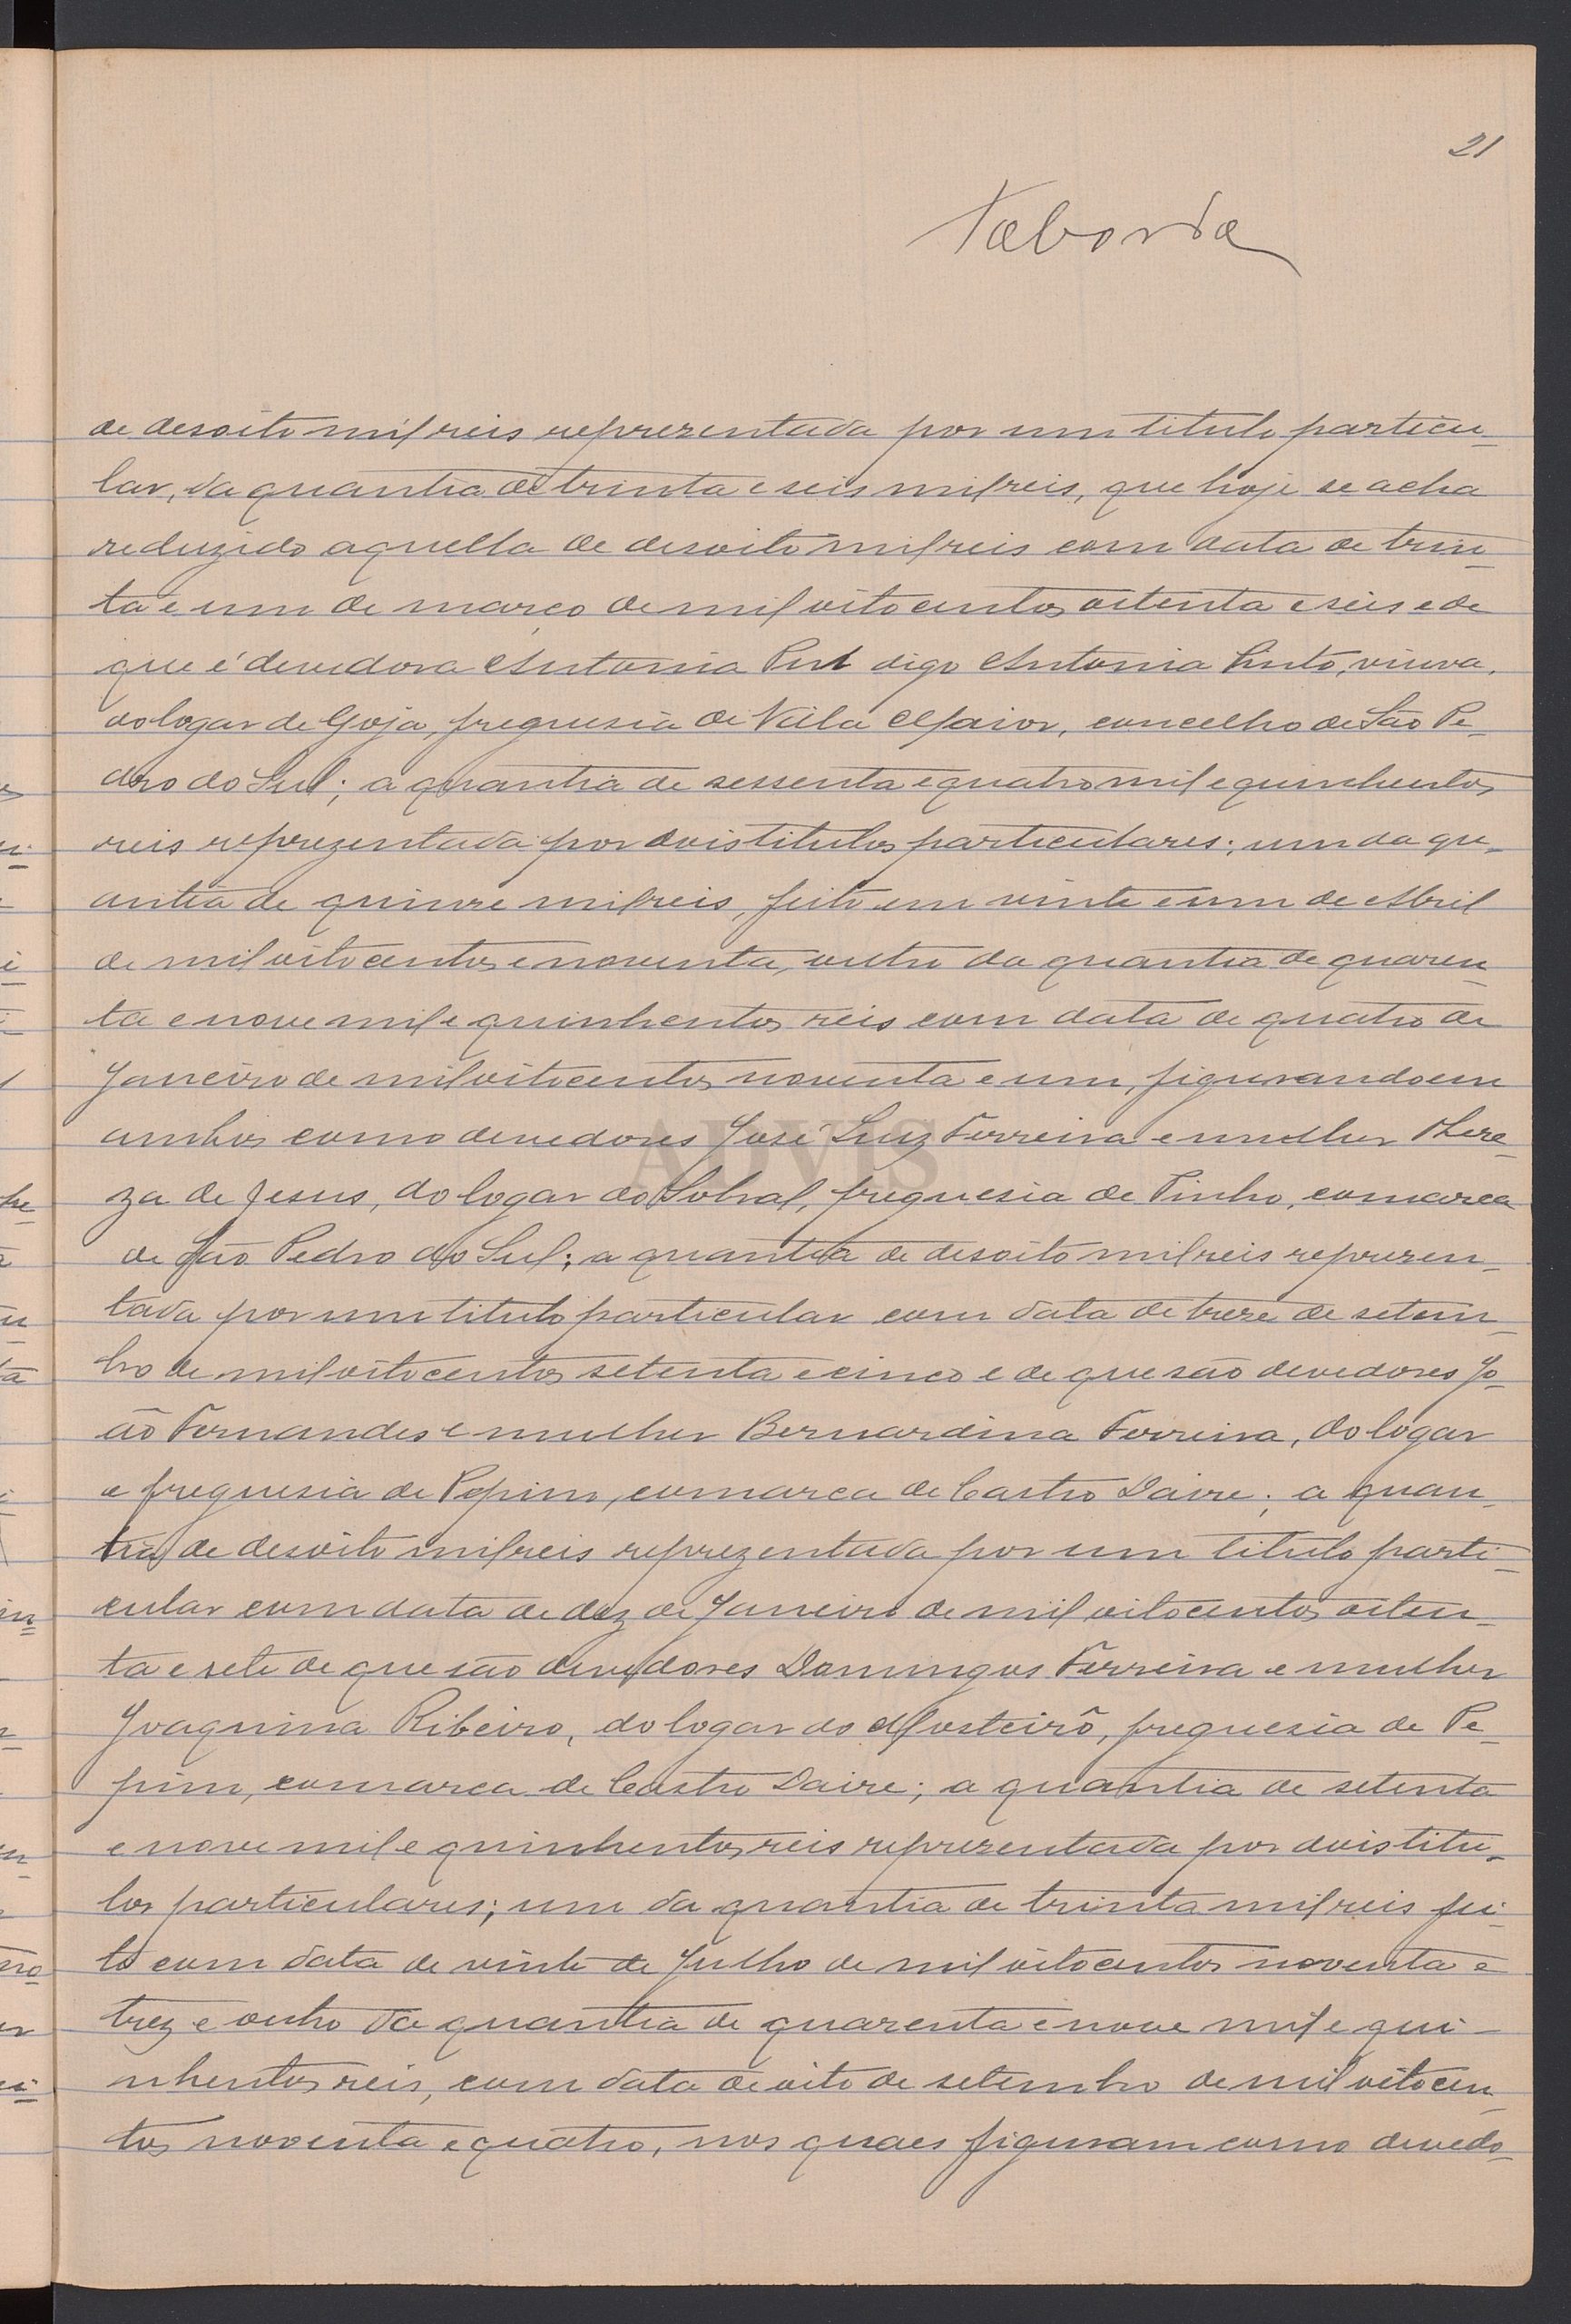 21
Taborda
de desoito mil reis reprezentada por um titulo particu-
lar, da quantia de trinta e seis mil reis, que hoje se acha
reduzido aquella de desoito mil reis com data de trin-
ta e um de março de mil oitocentos oitenta e seis e de
que é devedora Antonia Pint digo Antonia Pinto, viuva,
do logar de Goja, freguesia de Villa Maior, concelho de São Pe-
dro do Sul; a quantia de sessenta e quatro mil e quinhentos
reis reprezentada por dois titulos particulares; um da qu-
antia de quinze mil reis, feito em vinte e um de Abril
de mil oitocentos e noventa, outro da quantia de quaren-
ta e nove mil e quinhentos reis com data de quatro de
Janeiro de mil oitocentos noventa e um, figurando em
ambos como devedores José Luiz Ferreira e mulher There-
za de Jesus, do logar do Sobral, freguesia de Pinho, comarca
de São Pedro do Sul; a quantia de desoito mil reis reprezen-
tada por um titulo particular com data de treze de setem-
bro de mil oitocentos setenta e cinco e de que são devedores Jo-
ão Fernandes e mulher Bernardina Ferreira, do logar
e freguesia de Pepim, comarca de Castro Daire; a quan-
tia de desoito mil reis reprezentada por um titulo parti-
cular com data de dez de Janeiro de mil oitocentos oiten-
ta e sete de que são devedores Domingos Ferreira e mulher
Joaquina Ribeiro, do logar do Mosteirô, freguesia de Pe-
pim, comarca de Castro Daire; a quantia de setenta
e nove mil e quinhentos reis reprezentada por dois titu-
los particulares; um da quantia de trinta mil reis fei-
to com data de vinte de Julho de mil oitocentos noventa e
trez e outro da quantia de quarenta e nove mil e qui-
nhentos reis, com data de oito de setembro de mil oitocen-
tos noventa e quatro, nos quaes figuram como devedo-
ADVIS